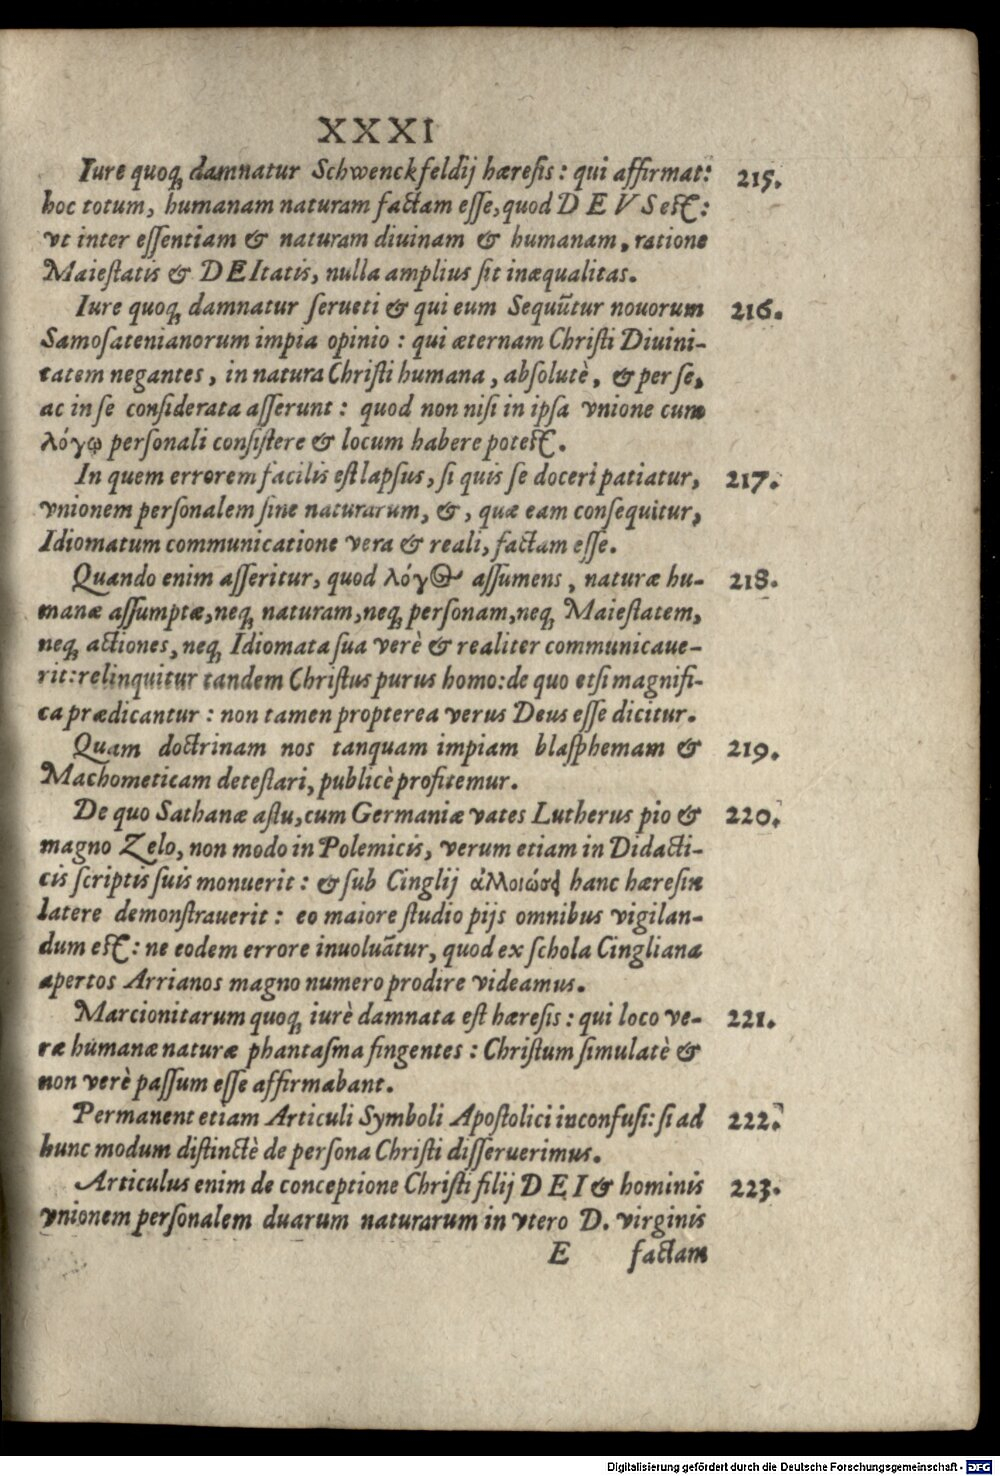 XXXI
Iure quoq; damnatur Schwenckfeldij hæresis: qui affirmat: 215.
hoc totum, humanam naturam factam esse, quod DEVS est:
vt inter essentiam & naturam diuinam & humanam, ratione
Maiestatis & DEItatis, nulla amplius sit inæqualitas.
Iure quoq; damnatur serueti & qui eum Sequũtur nouorum 216.
Samosatenianorum impia opinio: qui æternam Christi Diuini-
tatem negantes, in natura Christi humana, absolutè, & per se,
ac in se considerata asserunt: quod non nisi in ipsa vnione cum
λόγῳ personali consistere & locum habere potest.
In quem errorem facilis est lapsus, si quis se doceri patiatur, 217.
vnionem personalem sine naturarum, &, quæ eam consequitur,
Idiomatum communicatione vera & reali, factam esse.
Quando enim asseritur, quod λόγος assumens, naturæ hu- 218.
manæ assumptæ, neq; naturam, neq; personam, neq; Maiestatem,
neq; actiones, neq; Idiomata sua verè & realiter communicaue-
rit: relinquitur tandem Christus purus homo: de quo etsi magnifi-
ca prædicantur: non tamen propterea verus Deus esse dicitur.
Quam doctrinam nos tanquam impiam blasphemam & 219.
Machometicam detestari, publicè profitemur.
De quo Sathanæ astu, cum Germaniæ vates Lutherus pio & 220.
magno Zelo, non modo in Polemicis, verum etiam in Didacti-
cis scriptis suis monuerit: & sub Cinglij ἀλλοιώσει hanc hæresin
latere demonstrauerit: eo maiore studio pijs omnibus vigilan-
dum est: ne eodem errore inuoluãtur, quod ex schola Cingliana
apertos Arrianos magno numero prodire videamus.
Marcionitarum quoq; iurè damnata est hæresis: qui loco ve- 221.
ræ humanæ naturæ phantasma fingentes: Christum simulatè &
non verè passum esse affirmabant.
Permanent etiam Articuli Symboli Apostolici inconfusi: si ad 222.
hunc modum distinctè de persona Christi disseruerimus.
Articulus enim de conceptione Christi filij DEI & hominis 223.
vnionem personalem duarum naturarum in vtero D. virginis
E factam
Digitalisierung gefördert durch die Deutsche Forschungsgemeinschaft - DFG